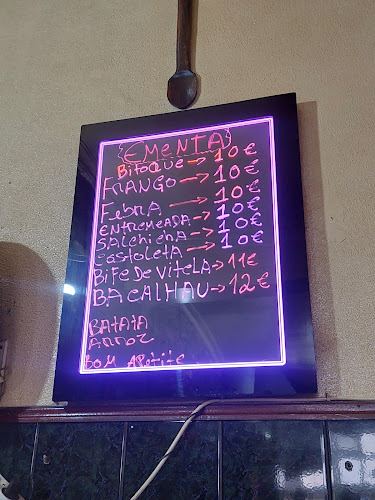 {EMENTA}
BITOQUE → 10€
FRANGO → 10€
FEBRA → 10€
ENTREMEADA → 10€
SALCHICHA → 10€
COSTOLETA → 10€
BIFE DE VITELA → 11€
BACALHAU → 12€
BATATA
ARROZ
BOM APETITE